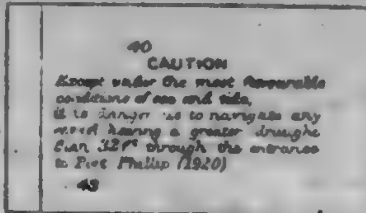 40
CAUTION
Except under the most favourable
conditions of sea and tide,
it is dangerous to navigate any
vessel having a greater draught
than 32 Ft through the entrance
to Port Phillip (1920)
43